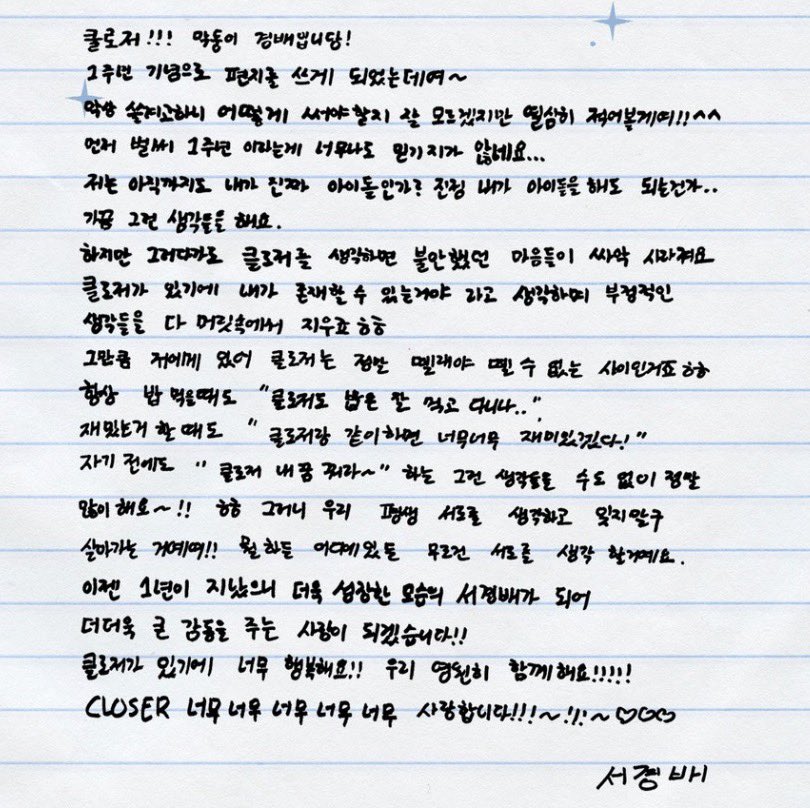 클로저!!! 막둥이 경배입니당!
1주년 기념으로 편지를 쓰게 되었는데여~
막상 쓸려고하니 어떻게 써야할지 잘 모르겠지만 열심히 적어볼게여!!^^
먼저 벌써 1주년 이라는게 너무나도 믿기지가 않네요...
저는 아직까지도 내가 진짜 아이돌인가? 진짐 내가 아이돌을 해도 되는건가..
가끔 그런 생각들을 해요.
하지만 그러다가도 클로저를 생각하면 불안했던 마음들이 싸악 사라져요
클로저가 있기에 내가 존재할 수 있는거야 라고 생각하며 부정적인
생각들을 다 머릿속에서 지우죠 ㅎㅎ
그만큼 저에게 있어 클로저는 정말 뗄래야 뗄 수 없는 사이인거죠 ㅎㅎ
항상 밥 먹을때도 "클로저도 밥은 잘 먹고 다니나.."
재밌는거 할 때도 "클로저랑 같이하면 너무너무 재미있겠다!"
자기 전에도 "클로저 내꿈 꿔라~" 하는 그런 생각들을 수도 없이 정말
많이 해요~!! ㅎㅎ 그러니 우리 평생 서로를 생각하고 잊지말구
살아가는 거예여!! 뭘 하든 어디에있든 무조건 서로를 생각 할거예요.
이젠 1년이 지났으니 더욱 성장한 모습의 서경배가 되어
더더욱 큰 감동을 주는 사람이 되겠습니다!!
클로저가 있기에 너무 행복해요!! 우리 영원히 함께해요!!!!!
CLOSER 너무너무 너무 너무 너무 사랑합니다!!!~!!!~♡♡♡
서경배